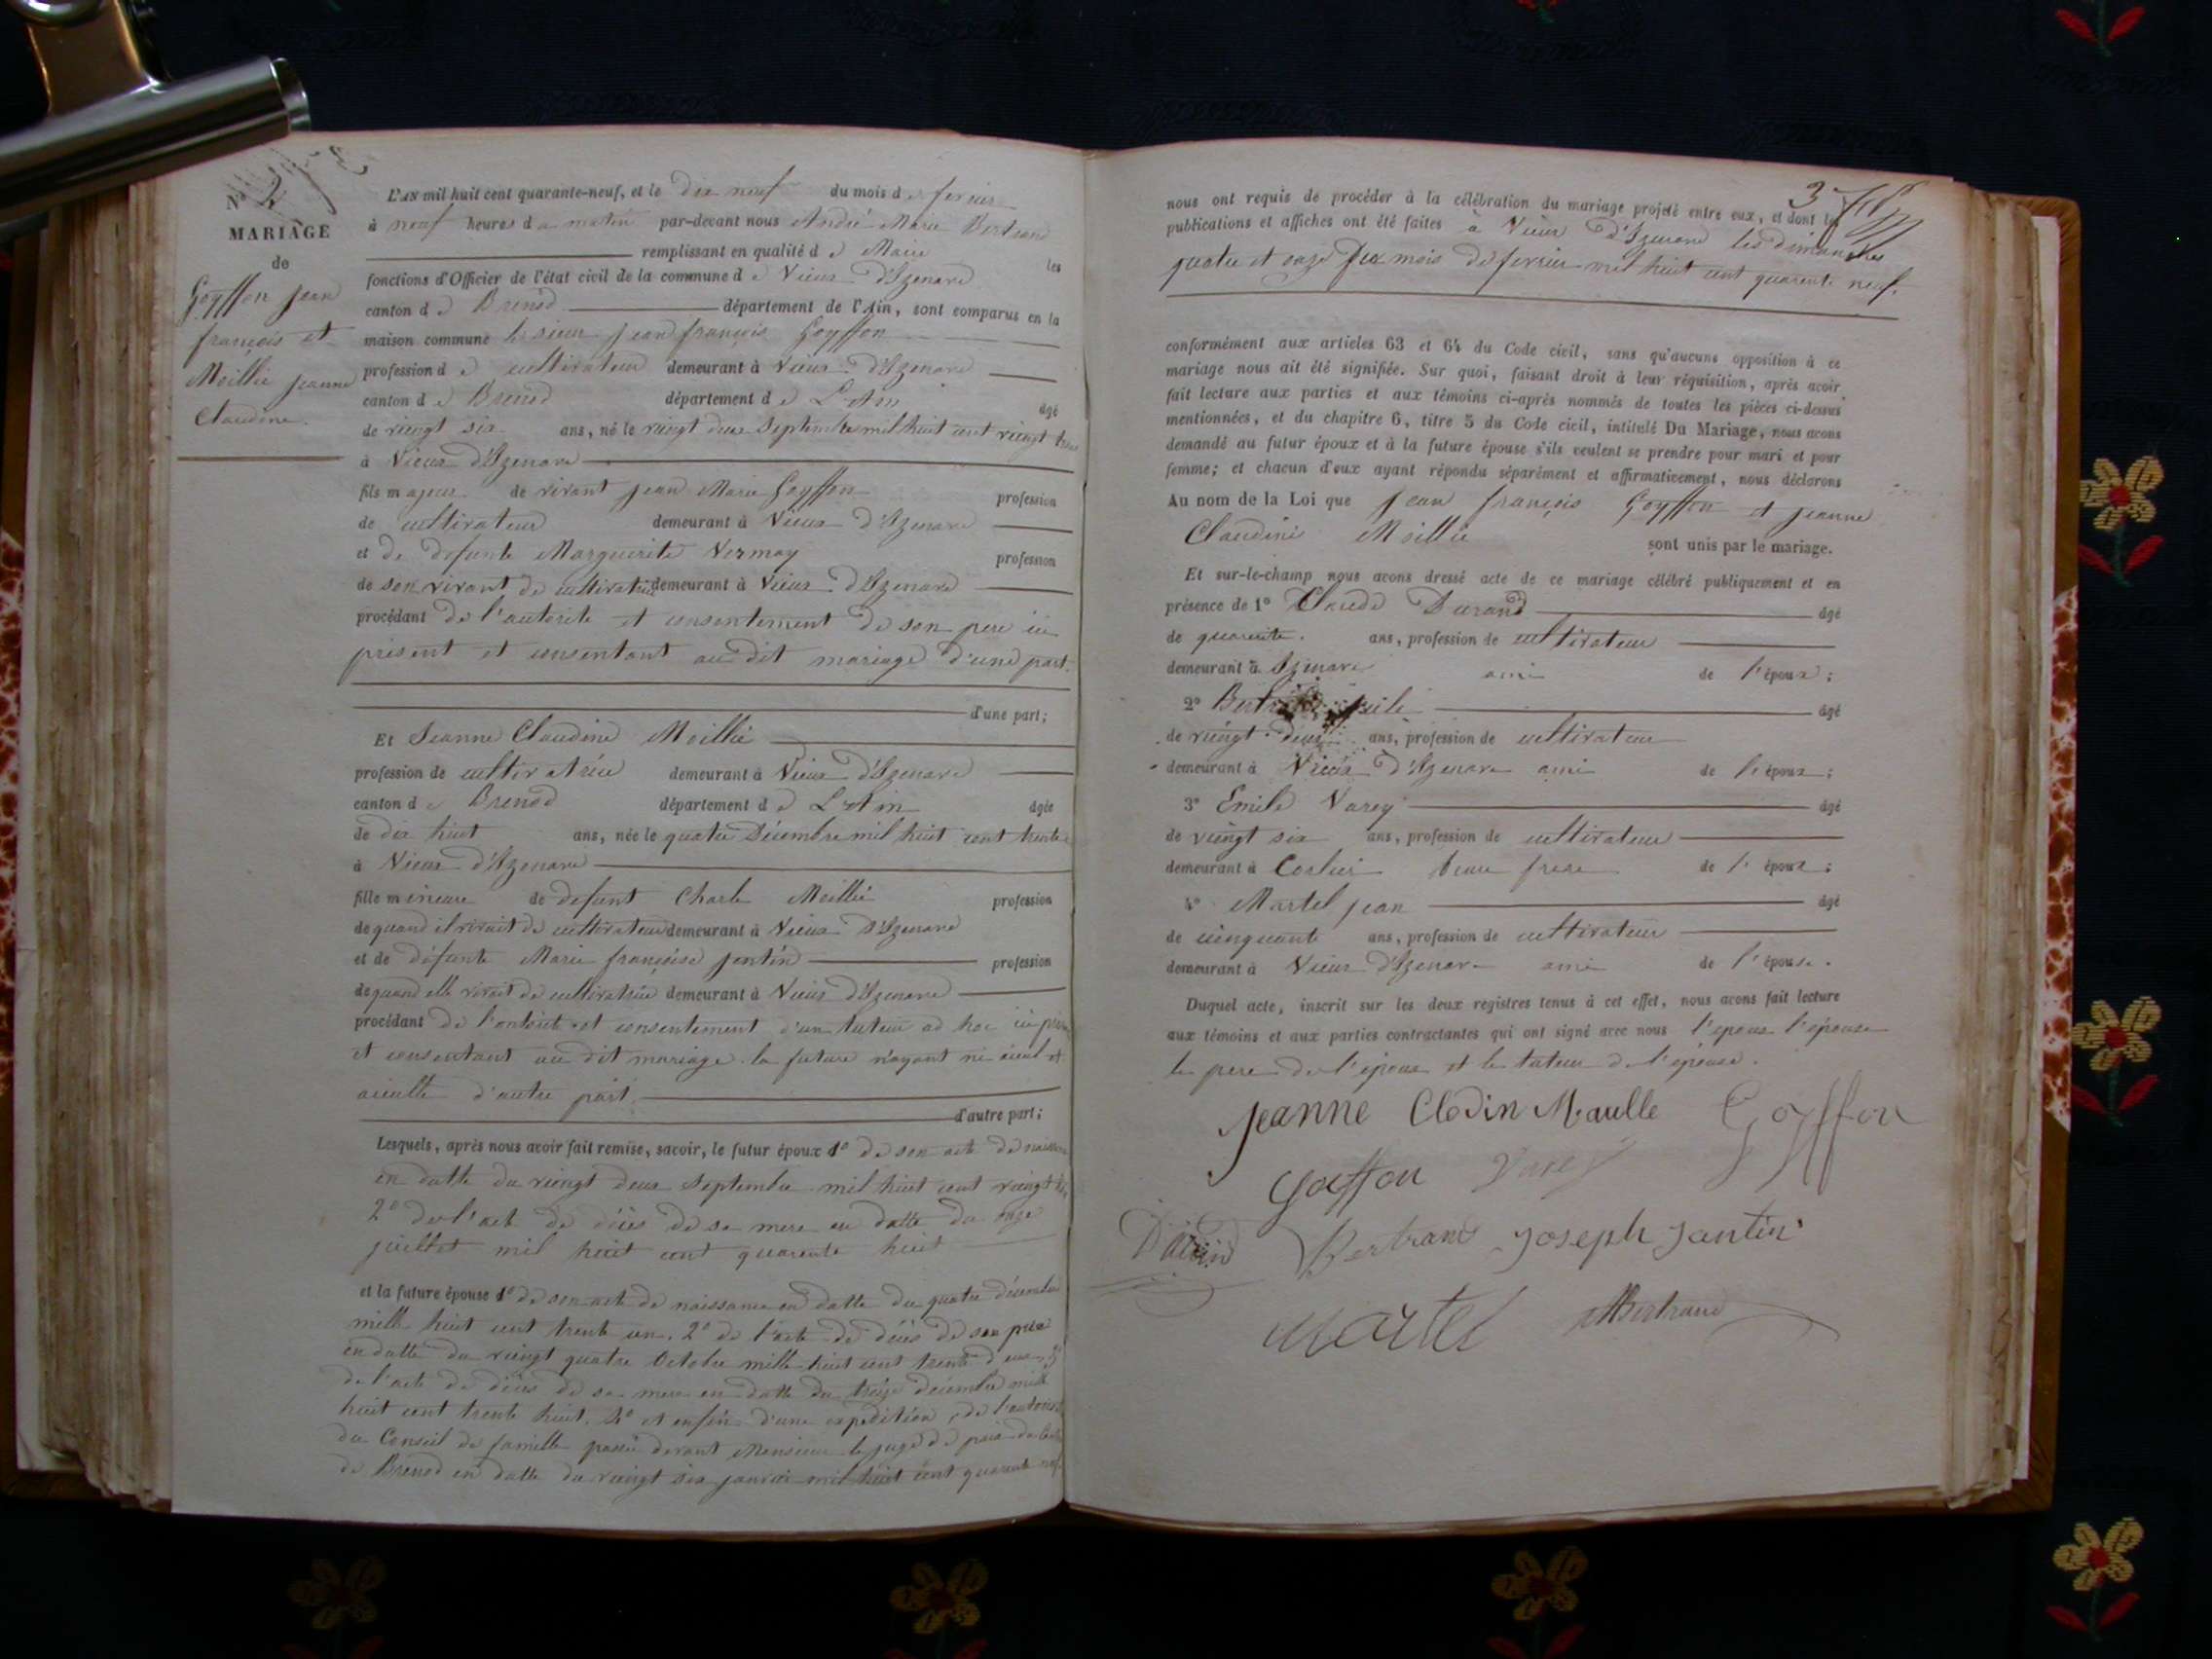 N° 2
MARIAGE
de
Goyffon jean
françois et
Moillie jeanne
Claudine.
L'AN mil huit cent quarante-neuf, et le dix neuf du mois de fevrier
à neuf heures du matin par-devant nous André Marie Bertrand
remplissant en qualité de Maire les
fonctions d'Officier de l'état civil de la commune de Vieux d'Izenave
canton de Brenod département de l'Ain, sont comparus en la
maison commune le sieur jean françois Goyffon
profession de cultivateur demeurant à Vieux d'Izenave
canton de Brenod département de L'Ain âgé
de vingt six ans, né le vingt deux Septembre mil huit cent vingt
à Vieux d'Izenave
fils majeur de vivant jean Marie Goyffon profession
de cultivateur demeurant à Vieux d'Izenave
et de defunte Marguerite Vermay profession
de son vivant de cultivatrice demeurant à Vieux d'Izenave
procédant de l'autorité et consentement de son pere ici
présent et consentant au dit mariage d'une part.
d'une part;
Et Jeanne Claudine Moillie
profession de cultivatrice demeurant à Vieux d'Izenave
canton de Brenod département de L'Ain âgée
de dix huit ans, née le quatre Décembre mil huit cent trente
à Vieux d'Izenave
fille mineure de defunt Charle Moillie profession
de quand il vivait de cultivateur demeurant à Vieux d'Izenave
et de défunte Marie françoise jentin profession
de quand elle vivait de cultivatrice demeurant à Vieux d'Izenave
procédant de l'autorité et consentement d'un tuteur ad hoc ici
et consentant au dit mariage la future n'ayant ni aieul et
aieulle d'autre part.
d'autre part;
Lesquels, après nous avoir fait remise, savoir, le futur époux 1° de son acte de naissance
en datte du vingt deux Septembre mil huit cent vingt
2° de l'acte de décès de sa mere en datte du onze
juillet mil huit cent quarente huit
et la future épouse 1° de son acte de naissance en datte du quatre décembre
mille huit cent trente un. 2° de l'acte de décès de son père
en datte du vingt quatre Octobre mille huit cent trente deux 3°
de l'acte de décès de sa mere en datte du treize décembre mille
huit cent trente huit. 4° et enfin d'une expédition de
du Conseil de famille passée devant Monsieur le juge de paix
de Brenod en datte du vingt six janvier mil huit cent quarente neuf
3
nous ont requis de procéder à la célébration du mariage projeté entre eux, et dont les
publications et affiches ont été faites à Vieux d'Izenave les dimanches
quatre et onze du mois de fevrier mil huit cent quarente neuf.
conformément aux articles 63 et 64 du Code civil, sans qu'aucune opposition à ce
mariage nous ait été signifiée. Sur quoi, faisant droit à leur réquisition, après avoir
fait lecture aux parties et aux témoins ci-après nommés de toutes les pièces ci-dessus
mentionnées, et du chapitre 6, titre 5 du Code civil, intitulé Du Mariage, nous avons
demandé au futur époux et à la future épouse s'ils veulent se prendre pour mari et pour
femme; et chacun d'eux ayant répondu séparément et affirmativement, nous déclarons
Au nom de la Loi que jean françois Goyffon et jeanne
Claudine Moillie sont unis par le mariage.
Et sur-le-champ nous avons dressé acte de ce mariage célébré publiquement et en
présence de 1° Claude Durand âgé
de quarente. ans, profession de cultivateur
demeurant à Izenave ami de l'époux;
2° âgé
de vingt deux ans, profession de cultivateur
demeurant à Vieux d'Izenave ami de l'époux;
3° Emile Varey âgé
de vingt six ans, profession de cultivateur
demeurant à Corlier beau frere de l'époux;
4° Martel jean âgé
de cinquante ans, profession de cultivateur
demeurant à Vieux d'Izenave ami de l'épouse.
Duquel acte, inscrit sur les deux registres tenus à cet effet, nous avons fait lecture
aux témoins et aux parties contractantes qui ont signé avec nous l'epoux l'épouse
le pere de l'époux et le tuteur de l'épouse.
jeanne Clodin Maulle Goyffon
Goffon Varey
Durand Bertrand joseph jantin
Martel Bertrand